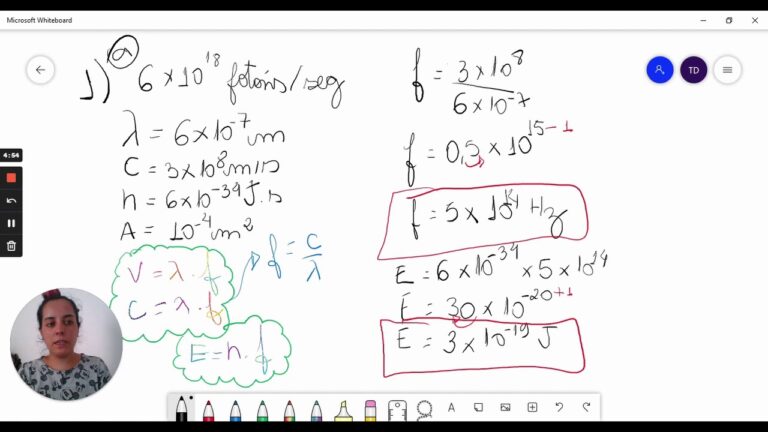 Microsoft Whiteboard
1) a 6 × 10¹⁸ fotóns/seg
λ = 6 × 10⁻⁷ m
C = 3 × 10⁸ m/s
h = 6 × 10⁻³⁴ J.s
A = 10⁻⁴ m²
V = λ . f
C = λ . f
f = C/λ
E = h . f
f = 3 × 10⁸ / 6 × 10⁻⁷
f = 0,5 × 10¹⁵⁻¹
f = 5 × 10¹⁴ Hz
E = 6 × 10⁻³⁴ × 5 × 10¹⁴
E = 30 × 10⁻²⁰⁺¹
E = 3 × 10⁻¹⁹ J
TD
4:54
A